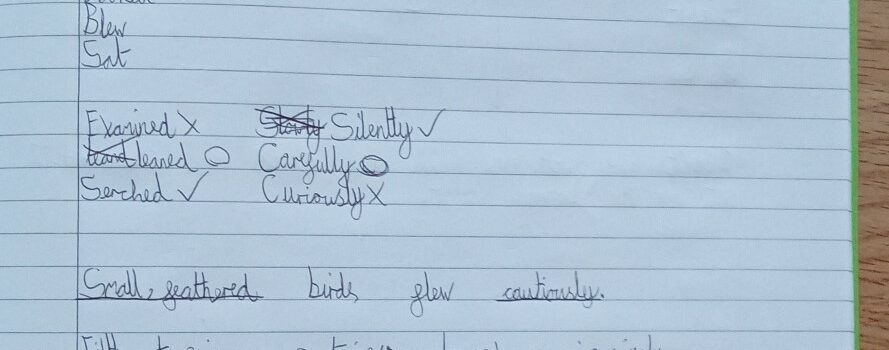 Blew
Sat
Examined X Silently ✓
leaned O Carefully O
Serched ✓ Curiously X
Small, feathered birds flew cautiously.